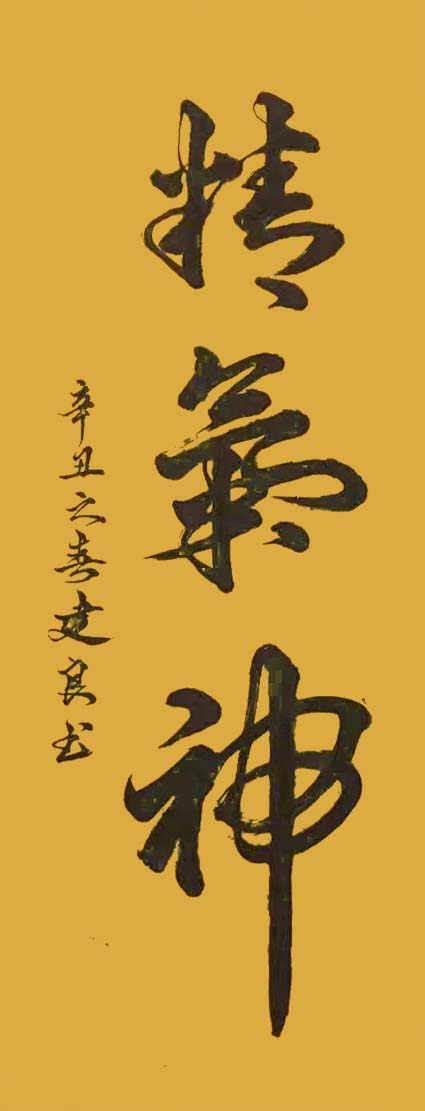 精氣神
辛丑之春建良书